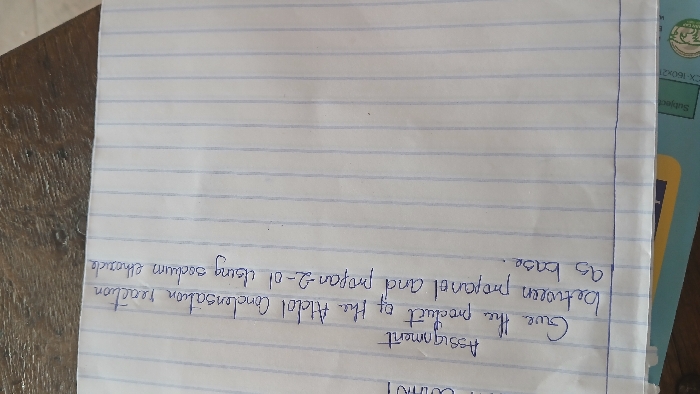 Assignment
Give the product of the Aldol Condensation reaction
between propanol and propan-2-ol using sodium ethoxide
as base.
Subject